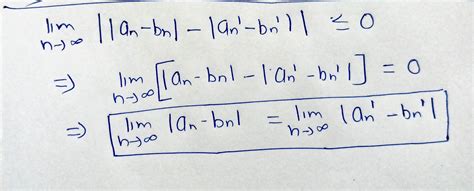 lim n→∞ ||an-bn| - |an'-bn'|| ≤ 0
⇒ lim n→∞ [|an-bn| - |an'-bn'|] = 0
⇒ lim n→∞ |an-bn| = lim n→∞ |an'-bn'|